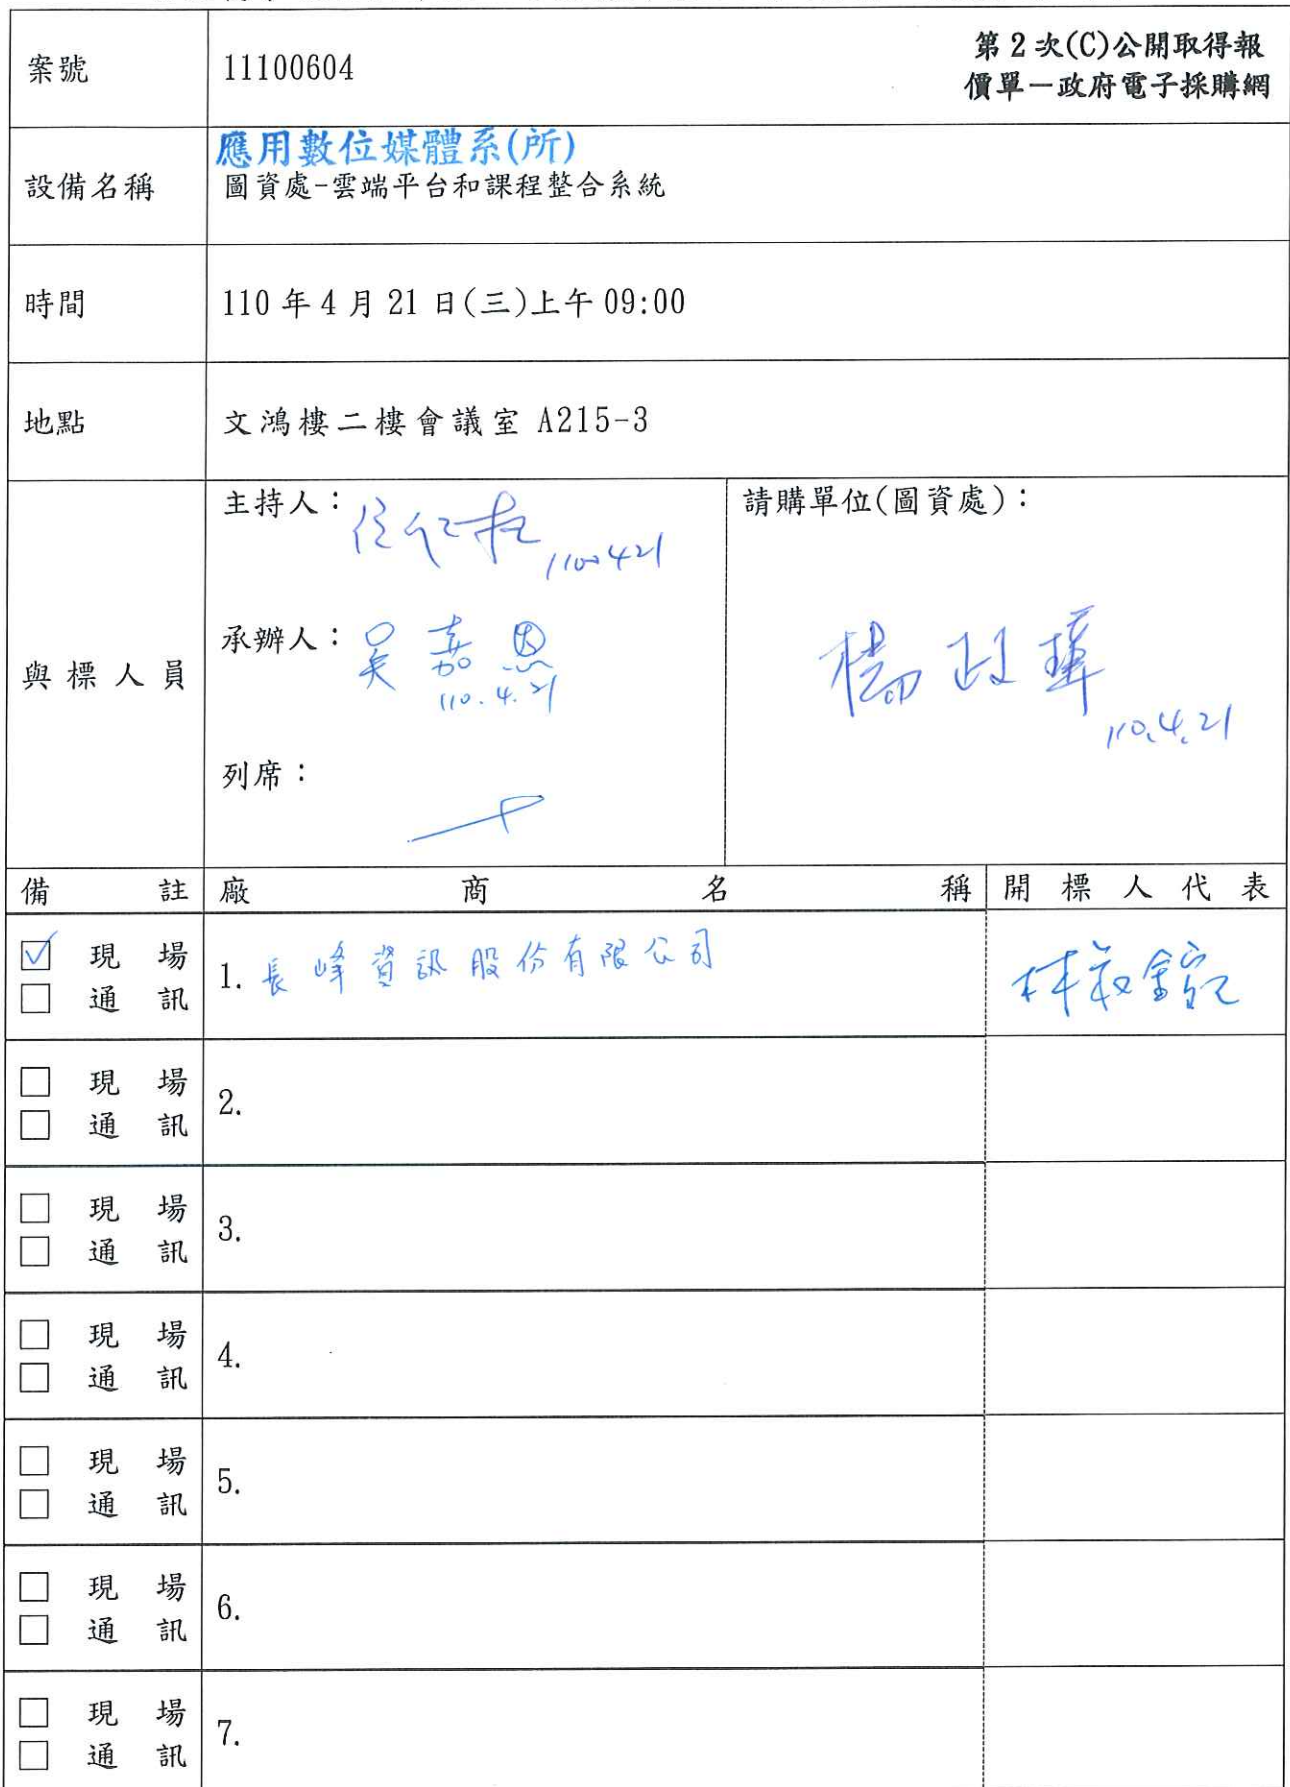 案號
11100604
第 2 次(C)公開取得報
價單－政府電子採購網
應用數位媒體系(所)
設備名稱
圖資處-雲端平台和課程整合系統
時間
110 年 4 月 21 日(三)上午 09:00
地點
文鴻樓二樓會議室 A215-3
與標人員
主持人：
110.4.21
承辦人：吳嘉恩
110.4.21
列席：
請購單位(圖資處)：
楊政瑋
110.4.21
備註 廠商名稱 開標人代表
☑ 現場
□ 通訊
1. 長峰資訊股份有限公司
□ 現場
□ 通訊
2.
□ 現場
□ 通訊
3.
□ 現場
□ 通訊
4.
□ 現場
□ 通訊
5.
□ 現場
□ 通訊
6.
□ 現場
□ 通訊
7.